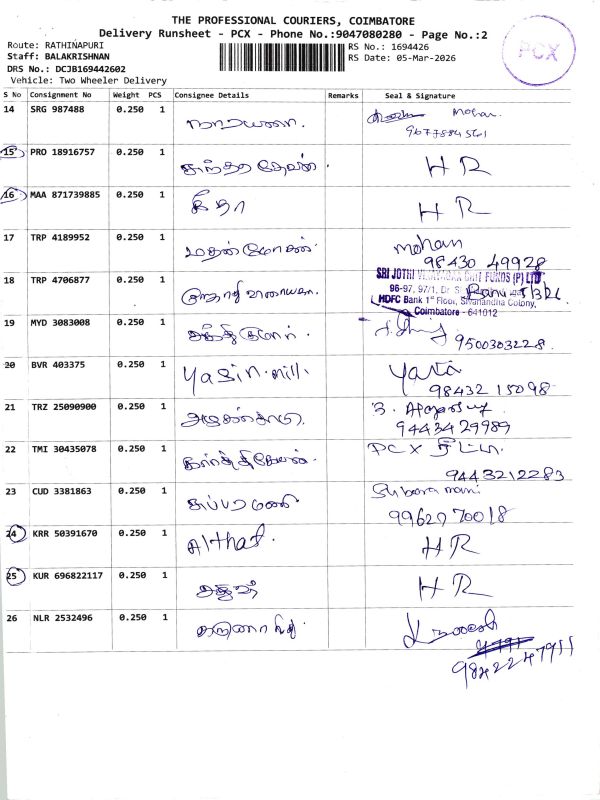 THE PROFESSIONAL COURIERS, COIMBATORE
Delivery Runsheet - PCX - Phone No.:9047080280 - Page No.:2
Route: RATHINAPURI
RS No.: 1694426
Staff: BALAKRISHNAN
RS Date: 05-Mar-2026
DRS No.: DCJB169442602
Vehicle: Two Wheeler Delivery
PCX
S No Consignment No Weight PCS Consignee Details Remarks Seal & Signature
14 SRG 987488 0.250 1 நாராயணன். Mohan
9677884561
15 PRO 18916757 0.250 1 HR
16 MAA 871739885 0.250 1 கீதா HR
17 TRP 4189952 0.250 1 மதன்மோகன். mohan
98430 49928
18 TRP 4706877 0.250 1
SRI JOTHI VIJAYAGAR CHIT FUNDS (P) LTD
96-97, 97/1, Dr.
HDFC Bank 1st Floor, Sivanandha Colony,
Coimbatore - 641012
19 MYD 3083008 0.250 1 சக்திகுமார்.
9500303228
20 BVR 403375 0.250 1 Yasin mill.
98432 15098
21 TRZ 25090900 0.250 1
9443429989
22 TMI 30435078 0.250 1 கார்த்திகேயன். PCX
9443212283
23 CUD 3381863 0.250 1 சுப்பரமணி Subaramani
9962070018
24 KRR 50391670 0.250 1 Althaf. HR
25 KUR 696822117 0.250 1 HR
26 NLR 2532496 0.250 1
9842247911